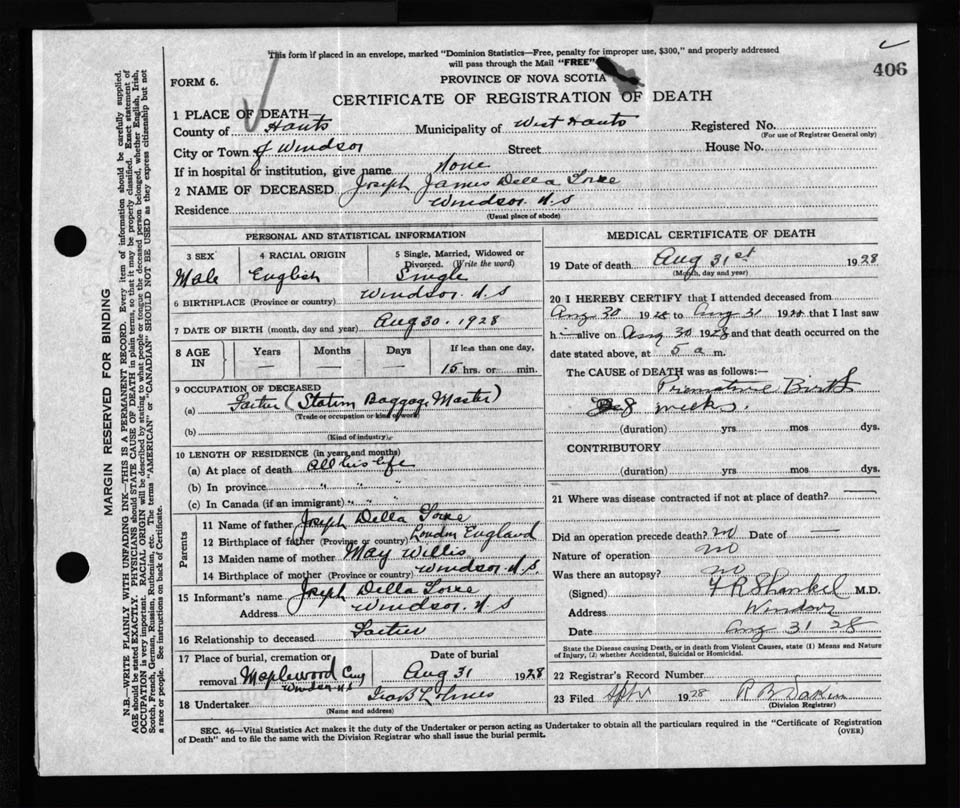 This form if placed in an envelope, marked "Dominion Statistics—Free, penalty for improper use, $300," and properly addressed
will pass through the Mail "FREE"
406
FORM 6.
PROVINCE OF NOVA SCOTIA
CERTIFICATE OF REGISTRATION OF DEATH
1 PLACE OF DEATH—
County of Hants Municipality of West Hants Registered No.
(For use of Registrar General only)
City or Town of Windsor Street House No.
If in hospital or institution, give name None
2 NAME OF DECEASED Joseph James Della Torre
Residence Windsor N.S
(Usual place of abode)
PERSONAL AND STATISTICAL INFORMATION
3 SEX 4 RACIAL ORIGIN 5 Single, Married, Widowed or
Divorced. (Write the word)
Male English Single
6 BIRTHPLACE (Province or country) Windsor N.S
7 DATE OF BIRTH (month, day and year) Aug 30. 1928
8 AGE IN Years Months Days If less than one day,
15 hrs. or min.
9 OCCUPATION OF DECEASED
(a) (Station Baggage Master)
(Trade or occupation or kind of work)
(b)
(Kind of industry)
10 LENGTH OF RESIDENCE (in years and months)
(a) At place of death All his life
(b) In province " " "
(c) In Canada (if an immigrant) " " "
Parents
11 Name of father Joseph Della Torre
12 Birthplace of father (Province or country) London England
13 Maiden name of mother May Willis
14 Birthplace of mother (Province or country) Windsor N.S.
15 Informant's name Joseph Della Torre
Address Windsor N S
16 Relationship to deceased Father
17 Place of burial, cremation or Date of burial
removal Maplewood Cmy Aug 31 1928
Windsor N.S
18 Undertaker
(Name and address)
MEDICAL CERTIFICATE OF DEATH
19 Date of death Aug 31st 1928
(Month, day and year)
20 I HEREBY CERTIFY that I attended deceased from
Aug 30 1928 to Aug 31 1928 that I last saw
h— alive on Aug 30 1928 and that death occurred on
the date stated above, at 5 a m.
The CAUSE of DEATH was as follows:—
Premature Birth
8 weeks.
(duration) yrs mos dys.
CONTRIBUTORY
(duration) yrs mos dys.
21 Where was disease contracted if not at place of death? —
Did an operation precede death? no Date of —
Nature of operation no
Was there an autopsy? no
(Signed) F R Shankel M.D.
Address Windsor
Date Aug 31 28
State the Disease causing Death, or in death from Violent Causes, state (1) Means and Nature
of Injury, (2) whether Accidental, Suicidal or Homicidal.
22 Registrar's Record Number
23 Filed 1928
(Division Registrar)
SEC. 46—Vital Statistics Act makes it the duty of the Undertaker or person acting as Undertaker to obtain all the particulars required in the "Certificate of Registration
of Death" and to file the same with the Division Registrar who shall issue the burial permit.
(OVER)
MARGIN RESERVED FOR BINDING
N.B.—WRITE PLAINLY WITH UNFADING INK—THIS IS A PERMANENT RECORD. Every item of information should be carefully supplied.
AGE should be stated EXACTLY. PHYSICIANS should STATE CAUSE OF DEATH in plain terms, so that it may be properly classified. Exact statement of
OCCUPATION is very important. RACIAL ORIGIN will be described by stating to what people or tongue the deceased person belonged, whether English, Irish,
Scotch, French, German, Russian, Ruthenian, etc. The terms "AMERICAN" or "CANADIAN" SHOULD NOT BE USED as they express citizenship but not
a race or people. See instructions on back of Certificate.